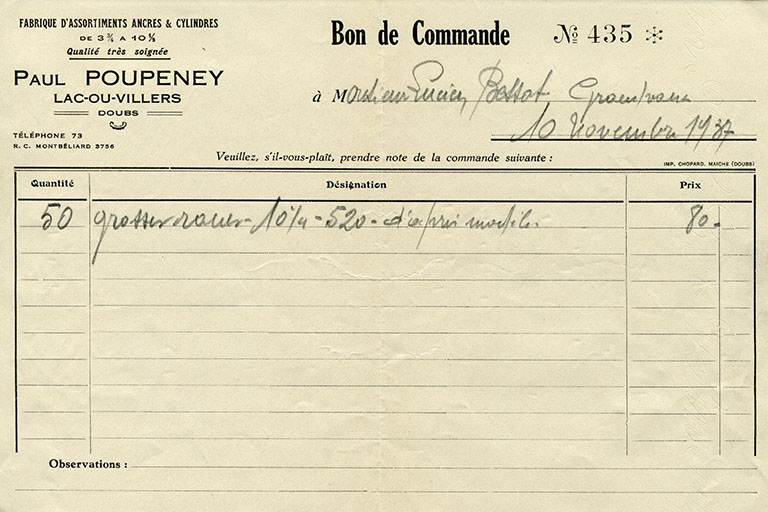 FABRIQUE D'ASSORTIMENTS ANCRES & CYLINDRES
DE 3¾ A 10½
Qualité très soignée
PAUL POUPENEY
LAC-OU-VILLERS
DOUBS
TÉLÉPHONE 73
R. C. MONTBÉLIARD 3756
Bon de Commande № 435 *
à Monsieur Lucien Bessot
10 Novembre 1937
Veuillez, s'il-vous-plaît, prendre note de la commande suivante :
IMP. CHOPARD. MAICHE (DOUBS)
Quantité Désignation Prix
50 grosses roues - 10½ - 520 - d'après modèle. 80.-
Observations :